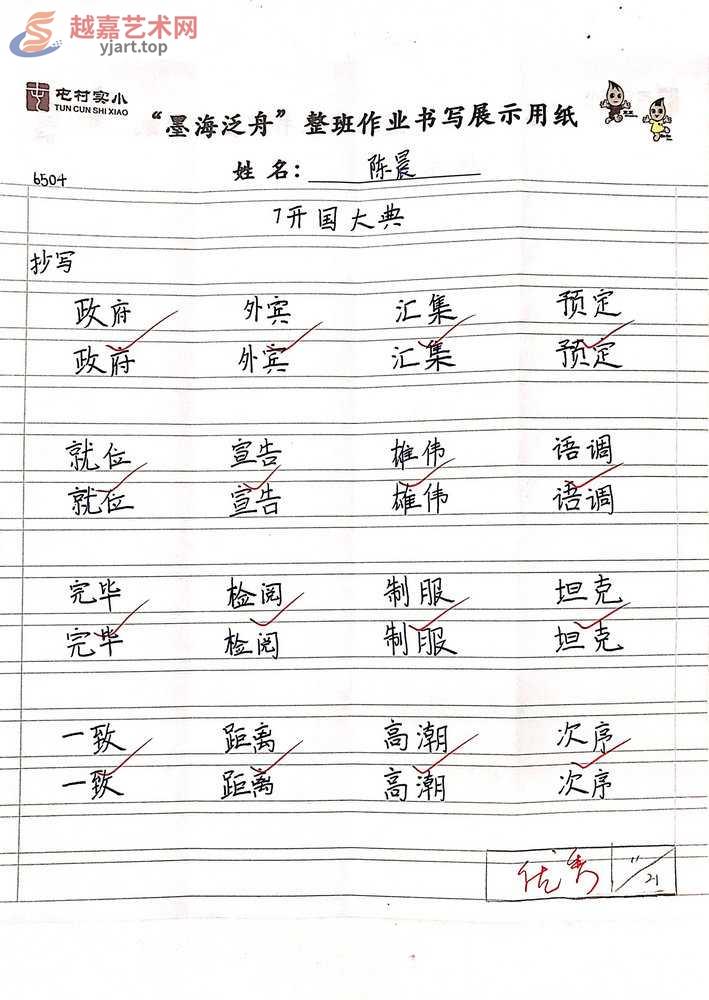 越嘉艺术网
yjart.top
屯村实小
TUN CUN SHI XIAO
“墨海泛舟”整班作业书写展示用纸
姓名：陈晨
6504
7开国大典
抄写
政府 外宾 汇集 预定
政府 外宾 汇集 预定
就位 宣告 雄伟 语调
就位 宣告 雄伟 语调
完毕 检阅 制服 坦克
完毕 检阅 制服 坦克
一致 距离 高潮 次序
一致 距离 高潮 次序
优秀 11/21